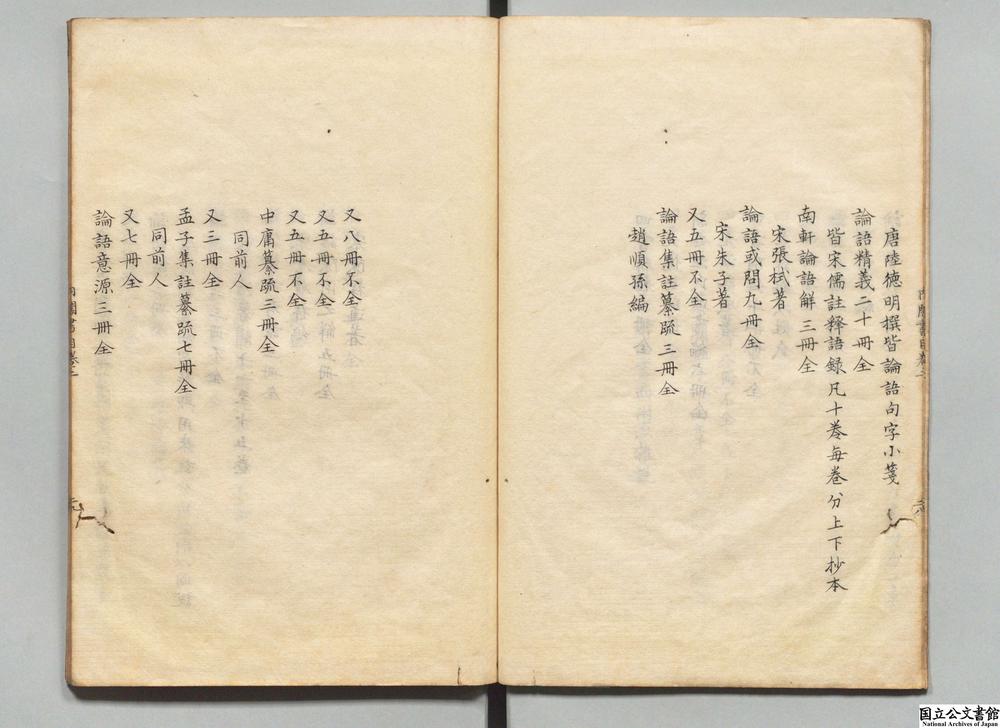 唐陸徳明撰皆論語句字小箋
論語精義二十冊全
皆宋儒註釋語録凡十卷每卷分上下抄本
南軒論語解三冊全
宋張栻著
論語或問九冊全
宋朱子著
又五冊不全
論語集註纂䟽三冊全
趙順孫編
又八冊不全
又五冊不全
又五冊不全
中庸纂䟽三冊全
同前人
又三冊全
孟子集註纂䟽七冊全
同前人
又七冊全
論語意源三冊全
国立公文書館
National Archives of Japan